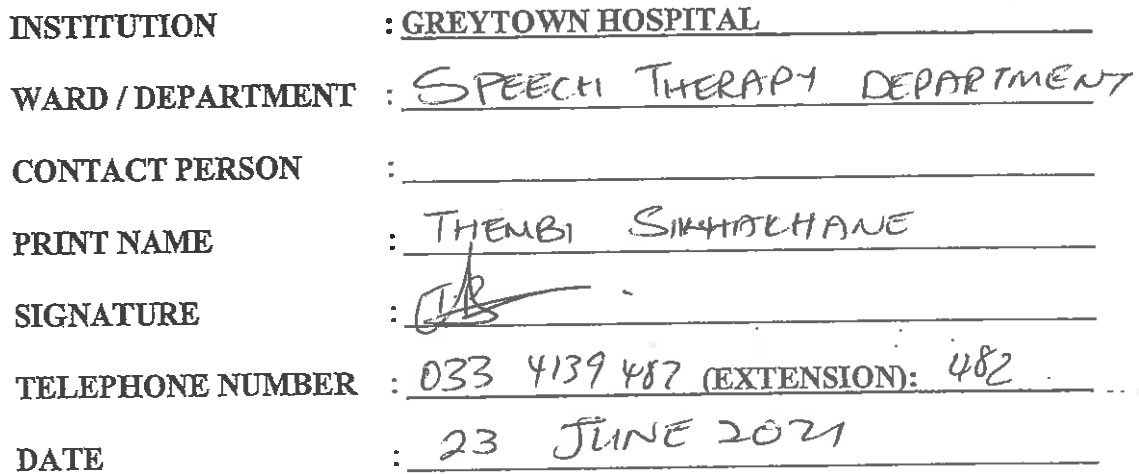 INSTITUTION : GREYTOWN HOSPITAL
WARD / DEPARTMENT : SPEECH THERAPY DEPARTMENT
CONTACT PERSON :
PRINT NAME : THEMBI SIKHAKHANE
SIGNATURE :
TELEPHONE NUMBER : 033 4139 487 (EXTENSION): 482
DATE : 23 JUNE 2021